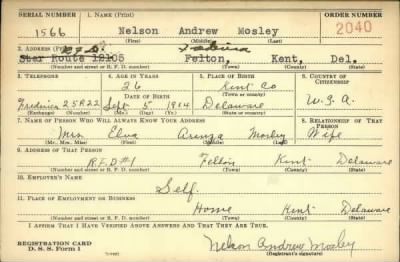 SERIAL NUMBER 1. NAME (Print) ORDER NUMBER
1566 Nelson Andrew Mosley 2040
(First) (Middle) (Last)
2. ADDRESS (Print)
Star Route 12105 Felton, Kent, Del.
(Number and street or R. F. D. number) (Town) (County) (State)
3. TELEPHONE 4. AGE IN YEARS 5. PLACE OF BIRTH 6. COUNTRY OF CITIZENSHIP
26 Kent Co
DATE OF BIRTH (Town or county)
Frederica 25R22 Sept 5 1914 Delaware U.S.A.
(Exchange) (Number) (Mo.) (Day) (Yr.) (State or country)
7. NAME OF PERSON WHO WILL ALWAYS KNOW YOUR ADDRESS 8. RELATIONSHIP OF THAT PERSON
Mrs. Elva Mosley Wife
(Mr., Mrs., Miss) (First) (Middle) (Last)
9. ADDRESS OF THAT PERSON
R.F.D #1 Felton Kent Delaware
(Number and street or R. F. D. number) (Town) (County) (State)
10. EMPLOYER'S NAME
Self.
11. PLACE OF EMPLOYMENT OR BUSINESS
Home Kent Delaware
(Number and street or R. F. D. number) (Town) (County) (State)
I AFFIRM THAT I HAVE VERIFIED ABOVE ANSWERS AND THAT THEY ARE TRUE.
REGISTRATION CARD
D. S. S. Form 1 Nelson Andrew Mosley
(Registrant's signature)